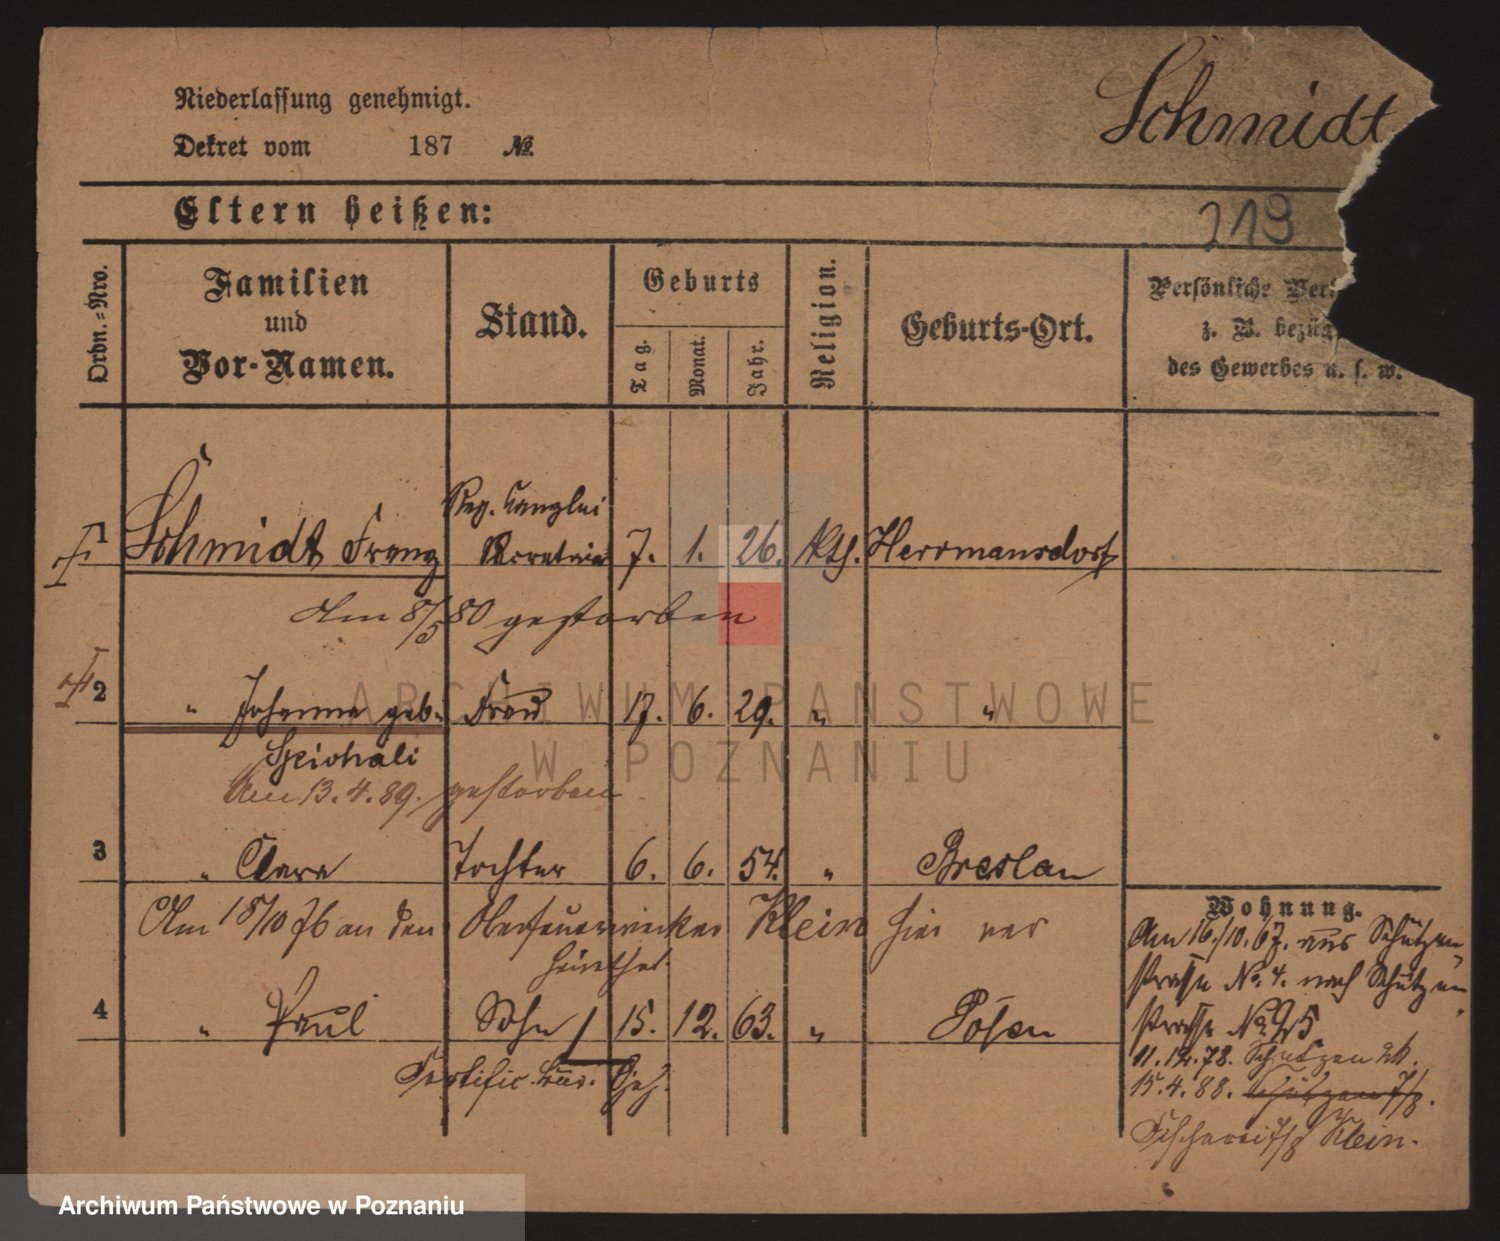 Schmidt
Niederlassung genehmigt.
Dekret vom 187 №
Eltern heißen:
213
Ordn.-Nro.
Familien und Vor-Namen.
Stand.
Geburts
Tag.
Monat.
Jahr.
Religion.
Geburts-Ort.
Persönliche
z. B.
des Gewerbes u. s. w.
1 Schmidt Franz Reg. Canzlei 7. 1. 26. kth. Herrmansdorf
Am 8/5 80 gestorben
2 " Johanna geb. Frau 17. 6. 29. " "
Am 13.4.89. gestorben
3 " Clara Tochter 6. 6. 54. " Breslau
Am 18/10 76 an den Oberfeuerwerker Klein hier ver
4 " Paul Sohn 15. 12. 63. " Posen
Wohnung.
Am 16./10. 67. aus Schützen
strasse No. 4. nach Schützen
strasse No.
11.12.78. Schützen 26.
15.4.88.
Klein.
ARCHIWUM PAŃSTWOWE
W POZNANIU
Archiwum Państwowe w Poznaniu